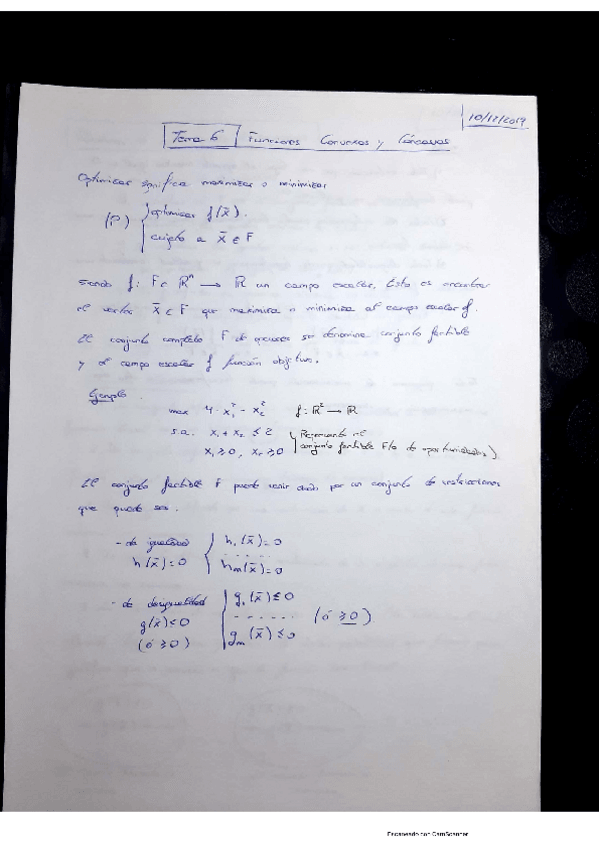 10/12/2019
Tema 6 Funciones Convexas y Cóncavas
Optimizar significa maximizar o minimizar
(P) { optimizar f(x̄).
sujeto a x̄ ∈ F
siendo f: F ⊂ ℝⁿ → ℝ un campo escalar. Esto es encontrar
el vector x̄ ∈ F que maximiza o minimiza al campo escalar f.
El conjunto completo F de opciones se denomina conjunto factible
y al campo escalar f función objetivo.
Ejemplo.
max 4 · x₁² - x₂² f: ℝ² → ℝ
s.a. x₁ + x₂ ≤ 2 Representando el
x₁ ≥ 0, x₂ ≥ 0 conjunto factible F (o de oportunidades)
El conjunto factible F puede venir dado por un conjunto de restricciones
que puede ser.
- de igualdad { h₁(x̄) = 0
h(x̄) = 0 - - - - - -
hm(x̄) = 0
- de desigualdad { g₁(x̄) ≤ 0
g(x̄) ≤ 0 - - - - - - (ó ≥ 0)
(ó ≥ 0) gm(x̄) ≤ 0
Escaneado con CamScanner